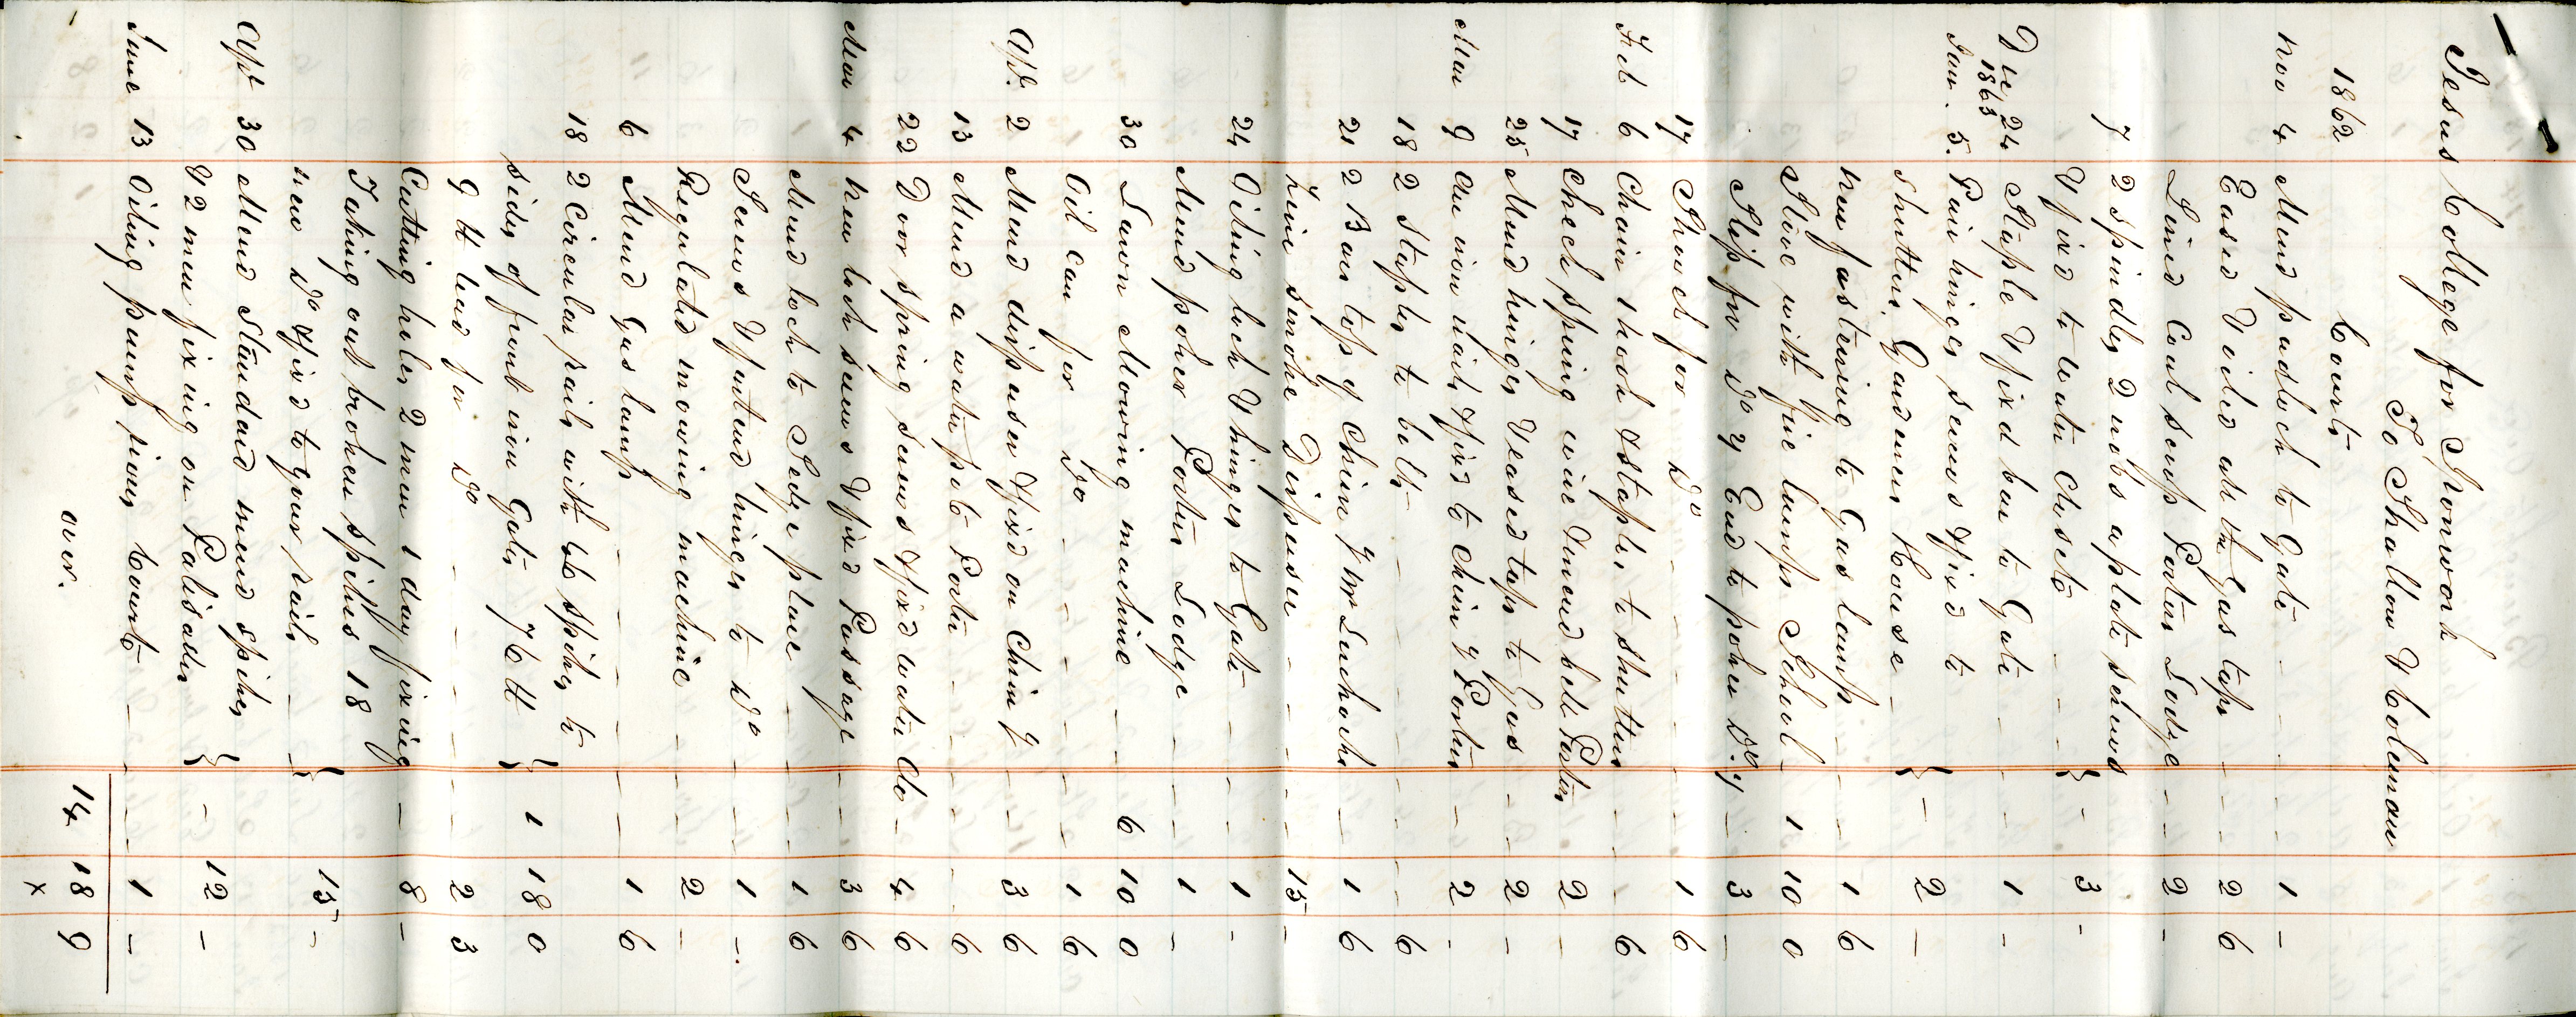 Jesus College for Ironwork
To Shallow & Coleman
1862 Courts
Nov 4 Mend padlock to Gate - - - 1 -
Eased & oiled all the Gas taps - - 2 6
Lined Coal scoop Porters Lodge - - 2 -
7 2 spindles 2 nobs a plate screws
& fixd to water Closets - - } - 3 -
Dec 24 Staple & fixd bar to Gate - - 1 -
1863
Jan. 5. Pair hinges screws & fixd to
shutters Gardeners House - } - 2 -
New fastening to Gas lamp - 1 6
Stove with fire lumps School - 1 10 0
Slip for Do & End to poker Do - 3 -
17 Shovel for Do - - - 1 6
Feb 6 Chain hook & staples to shutters - 6
17 Check spring wire & mend bell Porters 2 -
25 Mend hinges & eased taps to Gas - 2 -
Mar 9 An iron stail & fixd to chim y Porters - 2 -
18 2 Staples to bolts - - - 6
21 2 Bars top of Chim y Mr Luckock - 1 6
Zinc smoke Dispuser - - - 15 -
24 Oiling lock & hinges to Gate - - 1 -
Mend poker Porters Lodge - - 1 -
30 Lawn Mowing machine - - 6 10 0
Oil can for Do - - - 1 6
Apl. 2 Mend dispuser & fixd on Chim y - 3 6
13 Mend a water pot Porter - - - 6
22 Door spring screws & fixd water Clo - 4 6
May 4 New lock screws & fixd Passage - 3 6
Mend lock to Sedge place - - 1 6
Screws & fastend hinges to Do - 1 -
Regulated mowing machine - 2 -
6 Mend Gas lamp - - - 1 6
18 2 Circular rails with 46 spikes to
sides of front iron Gates 76 lb } 1 18 0
9 lb lead for Do - - - 2 3
Cutting holes 2 men 1 day fixing - 8 -
Taking out broken spikes 18
new Do & fixd to your rails - } 15 -
Apl 30 Mend Standard mend spikes
& 2 men fixing on Palisades } - 12 -
June 13 Oiling pump Court - - - 1 -
over. 14 18 9
x